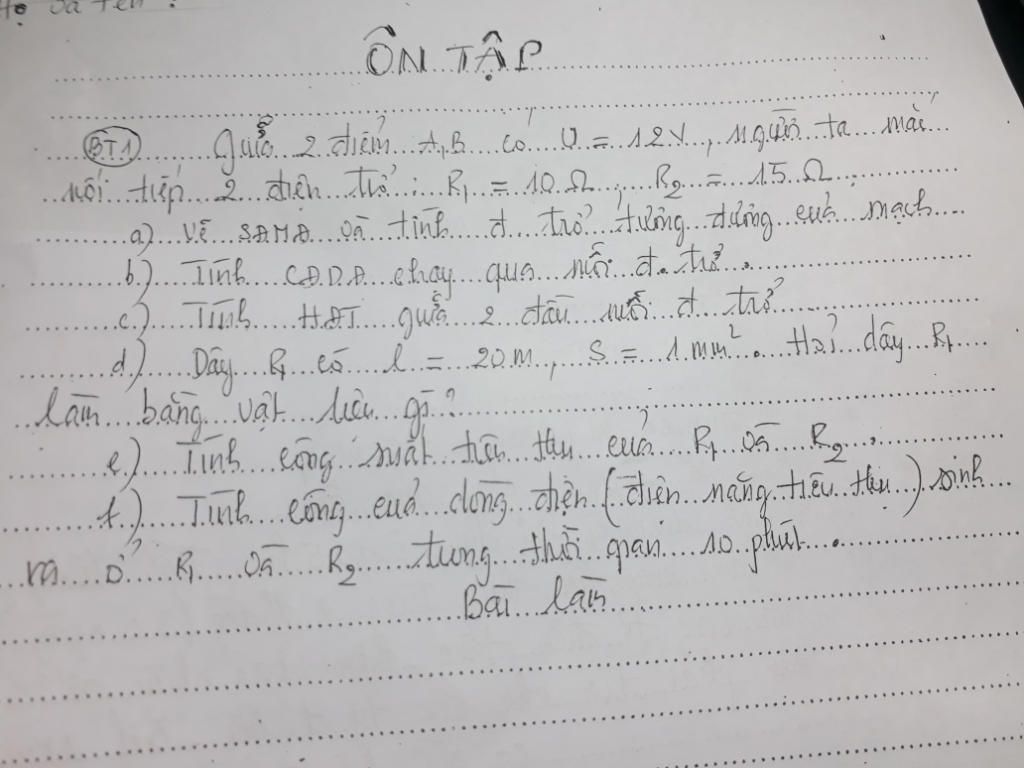 Họ và tên :
ÔN TẬP
BT1 Giữa 2 điểm A,B có U = 12V, người ta mắc
nối tiếp 2 điện trở : R1 = 10 Ω ; R2 = 15 Ω
a) Vẽ SĐMĐ và tính đ. trở tương đương của mạch
b) Tính CĐDĐ chạy qua mỗi đ. trở.
c) Tính HĐT giữa 2 đầu mỗi đ. trở
d) Dây R1 có l = 20m, S = 1mm². Hỏi dây R1
làm bằng vật liệu gì?
e) Tính công suất tiêu thụ của R1 và R2.
f) Tính công của dòng điện (điện năng tiêu thụ) sinh
ra ở R1 và R2 trong thời gian 10 phút.
Bài làm